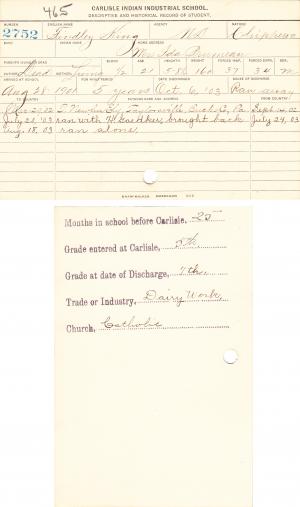 465
CARLISLE INDIAN INDUSTRIAL SCHOOL.
DESCRIPTIVE AND HISTORICAL RECORD OF STUDENT.
NUMBER ENGLISH NAME AGENCY NATION
2752 Findley King Chippewa
INDIAN NAME HOME ADDRESS
PARENTS LIVING OR DEAD BLOOD AGE HEIGHT WEIGHT FORCED INSP. FORCED EXPR. SEX
Dead Living 1/2 21 5-8 160 37 34 M
ARRIVED AT SCHOOL FOR WHAT PERIOD DATE DISCHARGED CAUSE OF DISCHARGE
Aug 28 1901 5 years Oct. 6, '03 Ran away
TO COUNTRY PATRONS NAME AND ADDRESS FROM COUNTRY
Taylorsville, Bucks Co, Pa Sept 14, 02
July 22, '03 ran with brought back July 24, 03
Aug. 18, 03 ran alone
Months in school before Carlisle, 25
Grade entered at Carlisle, 5th
Grade at date of Discharge, 7th
Trade or Industry, Dairy Work
Church, Catholic